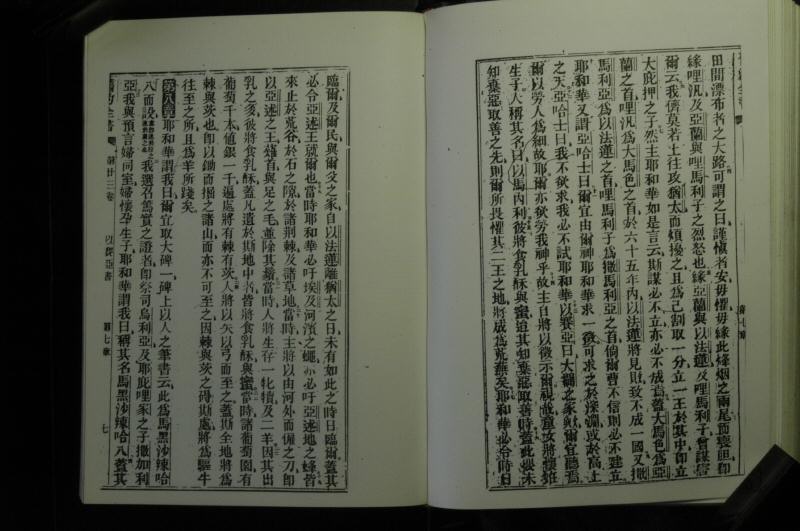 田間漂布者之大路可謂之曰謹慎者安毋懼毋緣此烽烟之兩尾而喪胆卽
緣哩汎及亞蘭與哩馬利子之烈怒也緣亞蘭與以法蓮及哩馬利子會謀害
爾云我儕莫若上往攻猶太而煩擾之且爲己割取一分立一王於其中卽立
大庇押之子然主耶和華如是言云斯謀必不立亦必不成蓋大馬色爲亞
蘭之首哩汎爲大馬色之首於六十五年內以法蓮將見敗致不成一國又撒
馬利亞爲以法蓮之首哩馬利子爲撒馬利亞之首倘爾曹不信則必不建立
耶和華又謂亞哈士曰爾宜由爾神耶和華求一徵可求之於深淵或於高上
之天亞哈士曰我不欲求我必不試耶和華以賽亞曰大闢之家歟爾宜聽焉
爾以勞人爲細故耶爾亦欲勞我神乎故主自將以徵示爾視哉童女將懷姙
生子人稱其名曰以馬內利彼將食乳酥與蜜迨其知棄惡取善時蓋此孩未
知棄惡取善之先則爾所畏懼其二王之地將成爲荒蕪矣耶和華必令時日
臨爾及爾民與爾父之家自以法蓮離猶太之日未有如此之時日臨爾蓋其
必令亞述王就爾也當時耶和華必吁埃及河濱之蠅亦必吁亞述地之蜂皆
來止於荒谷於石之隙於諸荆棘及諸草地當時主將以由河外而僱之刀卽
以亞述之王薙首與足之毛並除其鬚當時人將生存一牝犢及二羊因其出
乳之多彼將食乳酥蓋凡遺於斯地中者皆將食乳酥與蜜當時諸葡萄園有
葡萄千本值銀一千遍處將有棘有茨人將以矢以弓而至之蓋斯全地將爲
棘與茨也卽以鋤而掘之諸山而亦不可至之因棘與茨之碍斯處將爲驅牛
往至之所且爲羊所踐矣
第八章耶和華謂我曰爾宜取大碑一碑上以人之筆書云此爲馬黑沙辣哈
八而設我選召篤實之證者卽祭司烏利亞及耶庇哩家之子撒加利
亞我與預言婦同室婦懷孕生子耶和華謂我曰稱其名馬黑沙辣哈八蓋其
舊約全書
第廿三卷
以賽亞書
第七章
七